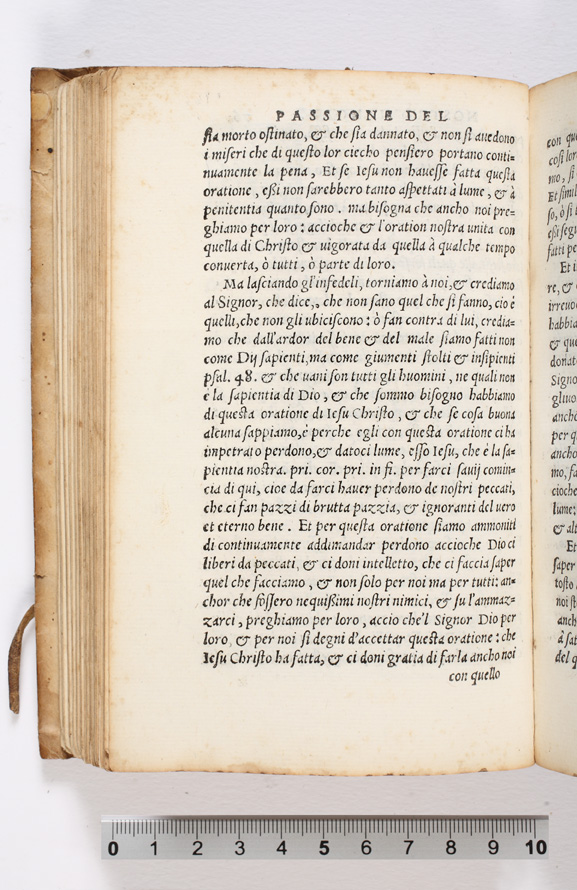 PASSIONE DEL
sia morto ostinato, & che sia dannato, & non si auedono
i miseri che di questo lor ciecho pensiero portano conti=
nuamente la pena, Et se Iesu non hauesse fatta questa
oratione, eßi non sarebbero tanto aspettati à lume, & à
penitentia quanto sono. ma bisogna che ancho noi pre=
ghiamo per loro: accioche & l'oration nostra unita con
quella di Christo & uigorata da quella à qualche tempo
conuerta, ò tutti, ò parte di loro.
Ma lasciando gl'infedeli, torniamo à noi, & crediamo
al Signor, che dice,, che non sano quel che si fanno, cio è
quelli, che non gli ubiciscono: ò fan contra di lui, credia=
mo che dall'ardor del bene & del male siamo fatti non
come Dij sapienti, ma come giumenti stolti & insipienti
psal. 48. & che uani son tutti gli huomini, ne quali non
è la sapientia di Dio, & che sommo bisogno habbiamo
di questa oratione di Iesu Christo, & che se cosa buona
alcuna sappiamo, è perche egli con questa oratione ci ha
impetrato perdono, & datoci lume, esso Iesu, che è la sa=
pientia nostra. pri. cor. pri. in fi. per farci sauij comin=
cia di qui, cioe da farci hauer perdono de nostri peccati,
che ci fan pazzi di brutta pazzia, & ignoranti del uero
et eterno bene. Et per questa oratione siamo ammoniti
di continuamente addimandar perdono accioche Dio ci
liberi da peccati, & ci doni intelletto, che ci faccia saper
quel che facciamo, & non solo per noi ma per tutti: an=
chor che fossero nequißimi nostri nimici, & su l'ammaz=
zarci, preghiamo per loro, accio che'l Signor Dio per
loro, & per noi si degni d'accettar questa oratione: che
Iesu Christo ha fatta, & ci doni gratia di farla ancho noi
con quello
con que
cosi lor
mo, si
Et simil
so, ò si
eßi segu
fatti pe
Et i
re, &
irreuoc
habbia
& que
donat
Signo
gliuo
ancho
per q
ancho
mo, fa
cioche
lume:
& alt
Et
saper
tosto,
noi st
anch
à sat
del q
0 1 2 3 4 5 6 7 8 9 10